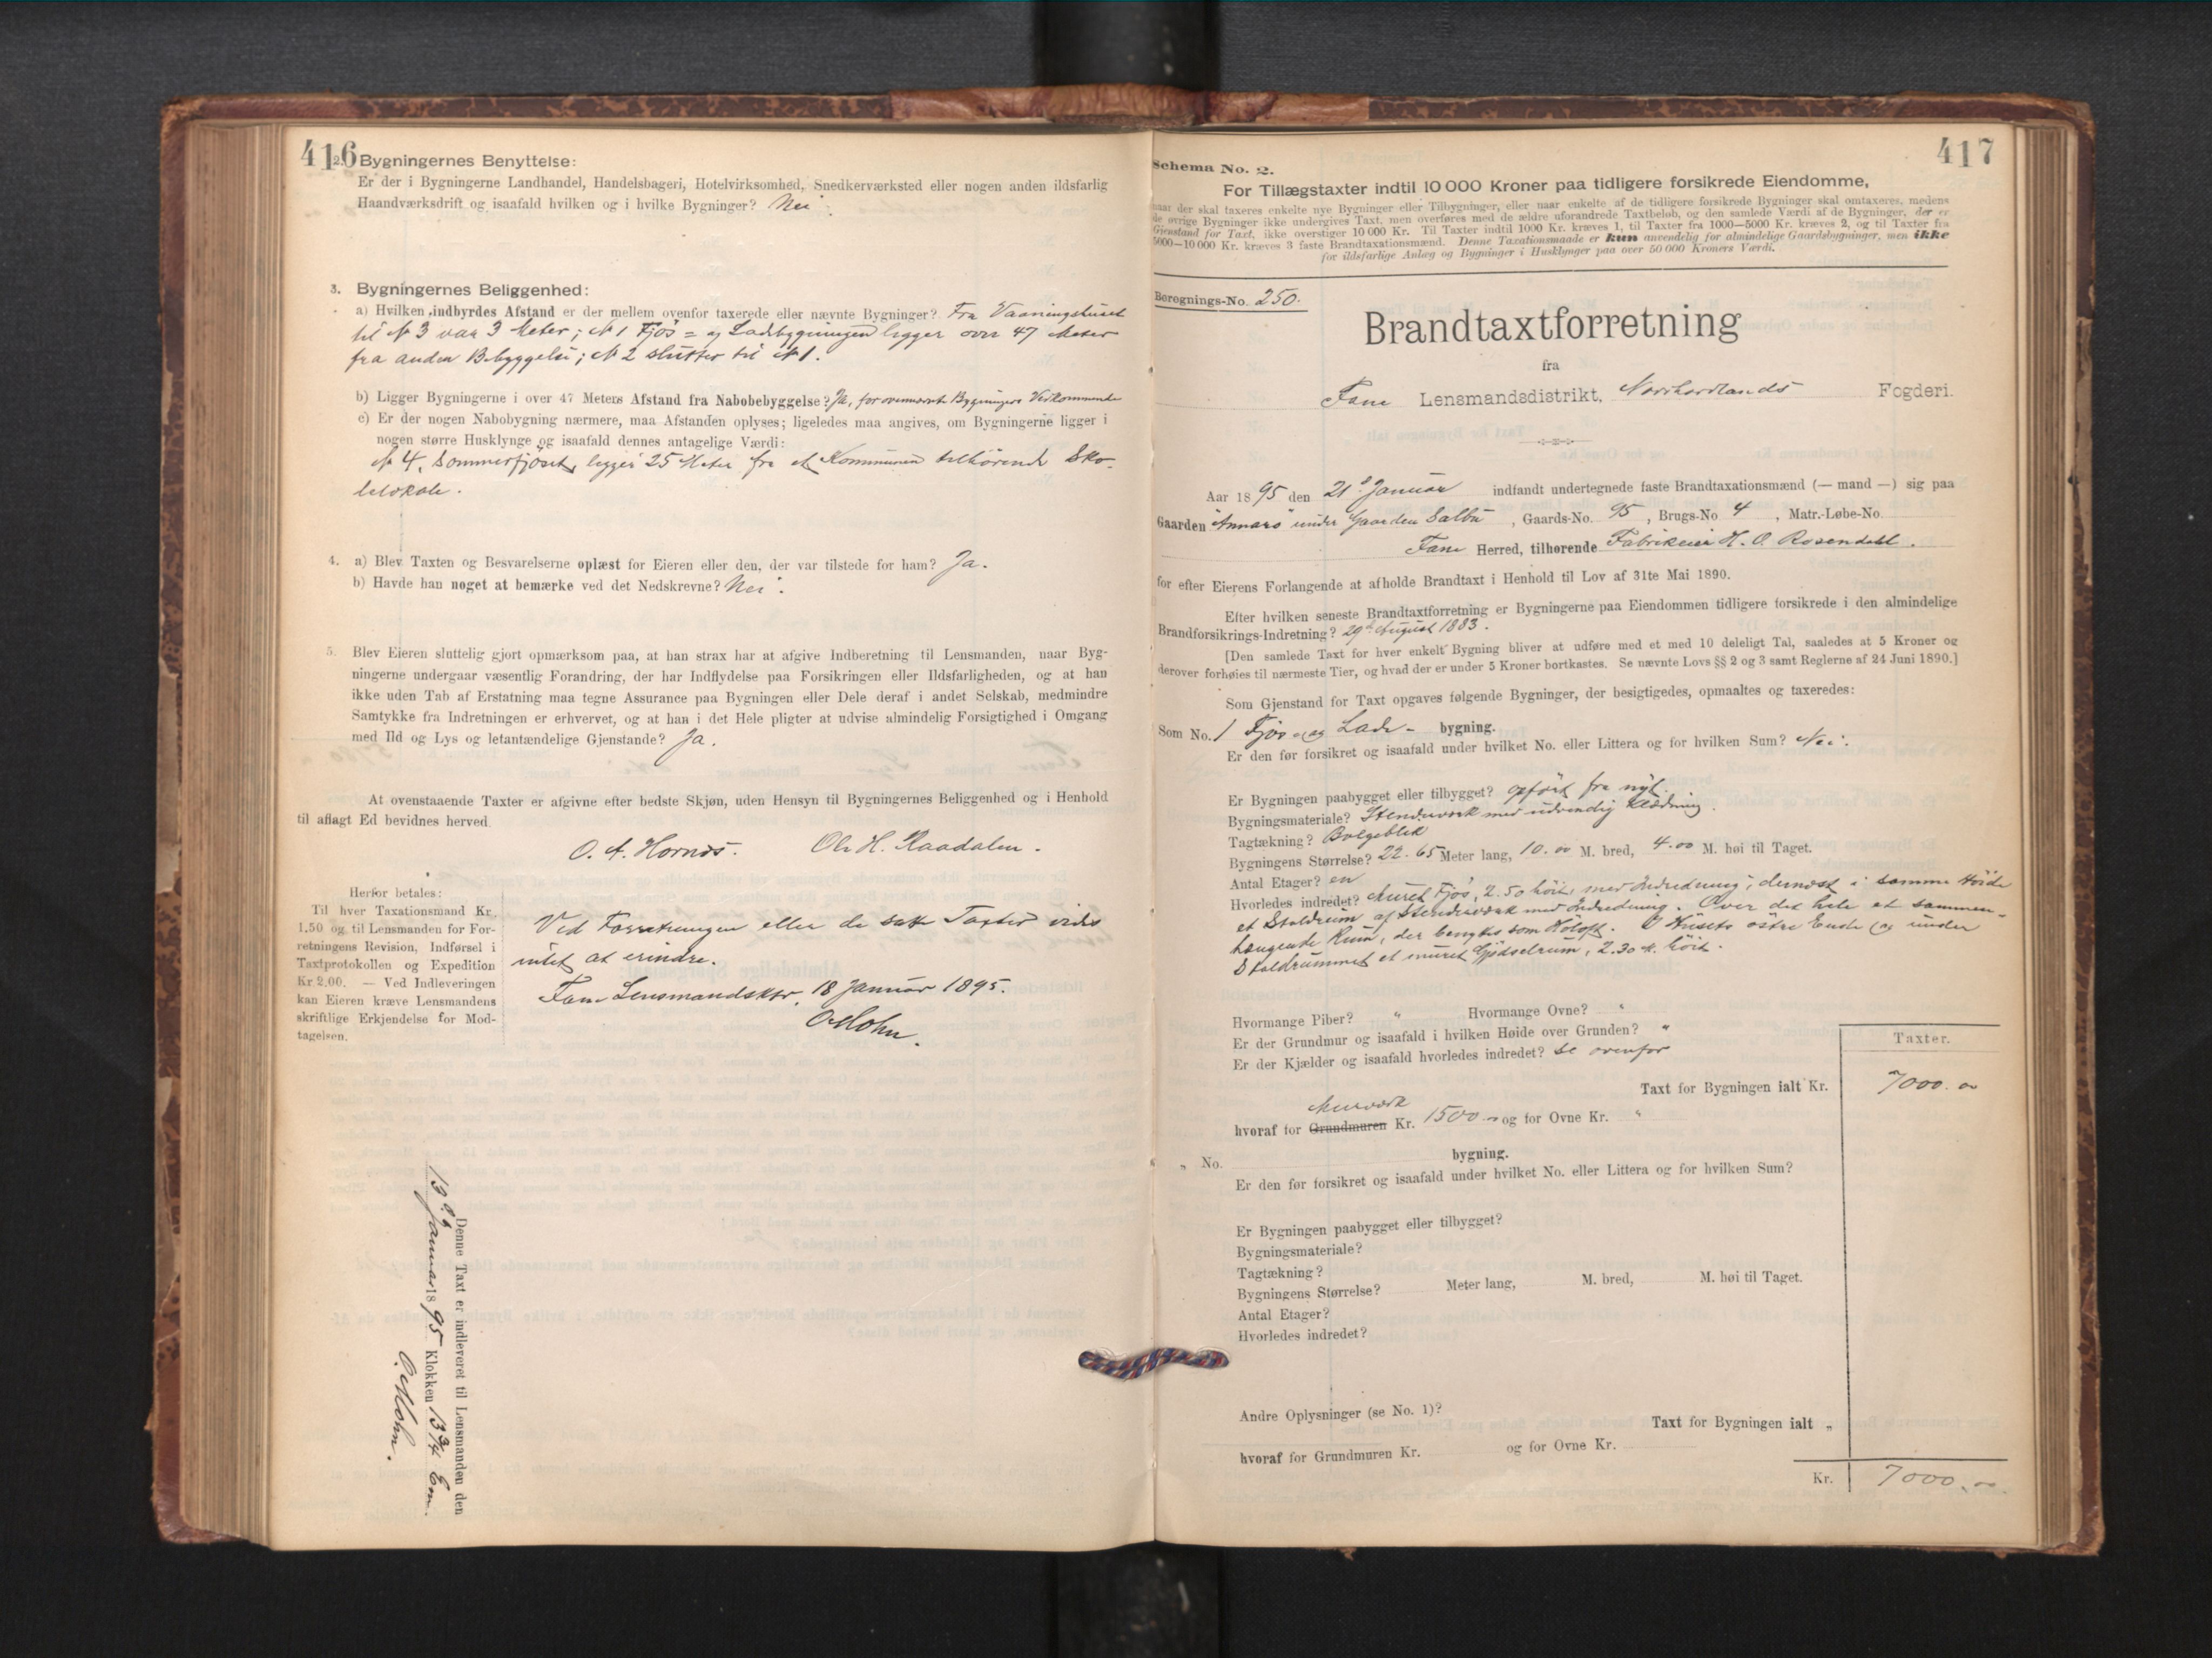 416
2. Bygningernes Benyttelse:
Er der i Bygningerne Landhandel, Handelsbageri, Hotelvirksomhed, Snedkerværksted eller nogen anden ildsfarlig
Haandværksdrift og isaafald hvilken og i hvilke Bygninger? Nei.
3. Bygningernes Beliggenhed:
a) Hvilken indbyrdes Afstand er der mellem ovenfor taxerede eller nævnte Bygninger? Fra Vaaningshuset
til № 3 var 3 Meter; № 1 Fjös = og Ladebygningen ligger over 47 Meter
fra anden Bebyggelse; № 2 slutter til № 1.
b) Ligger Bygningerne i over 47 Meters Afstand fra Nabobebyggelse? Ja, for ovennævnte Bygningers Vedkommende
c) Er der nogen Nabobygning nærmere, maa Afstanden oplyses; ligeledes maa angives, om Bygningerne ligger i
nogen større Husklynge og isaafald dennes antagelige Værdi:
№ 4, Sommerfjöset, ligger 25 Meter fra et Kommunen tilhörende Sko-
lelokale.
4. a) Blev Taxten og Besvarelserne oplæst for Eieren eller den, der var tilstede for ham? Ja.
b) Havde han noget at bemærke ved det Nedskrevne? Nei.
5. Blev Eieren sluttelig gjort opmærksom paa, at han strax har at afgive Indberetning til Lensmanden, naar Byg-
ningerne undergaar væsentlig Forandring, der har Indflydelse paa Forsikringen eller Ildsfarligheden, og at han
ikke uden Tab af Erstatning maa tegne Assurance paa Bygningen eller Dele deraf i andet Selskab, medmindre
Samtykke fra Indretningen er erhvervet, og at han i det Hele pligter at udvise almindelig Forsigtighed i Omgang
med Ild og Lys og letantændelige Gjenstande? Ja.
At ovenstaaende Taxter er afgivne efter bedste Skjøn, uden Hensyn til Bygningernes Beliggenhed og i Henhold
til aflagt Ed bevidnes herved.
O. A. Hornös. Ole H. Raadalen.
Herfor betales:
Til hver Taxationsmand Kr.
1.50 og til Lensmanden for For-
retningens Revision, Indførsel i
Taxtprotokollen og Expedition
Kr. 2.00. — Ved Indleveringen
kan Eieren kræve Lensmandens
skriftlige Erkjendelse for Mod-
tagelsen.
Ved Forretningen eller de satte Taxter vides
intet at erindre.
Fane Lensmandsktr. 18 Januar 1895.
O Mohn.
Denne Taxt er indleveret til Lensmanden den
13de Januar 1895 Klokken 13¾ Em.
O. Mohn.
417
Schema No. 2.
For Tillægstaxter indtil 10 000 Kroner paa tidligere forsikrede Eiendomme,
naar der skal taxeres enkelte nye Bygninger eller Tilbygninger, eller naar enkelte af de tidligere forsikrede Bygninger skal omtaxeres, medens
de øvrige Bygninger ikke undergives Taxt, men overføres med de ældre uforandrede Taxtbeløb, og den samlede Værdi af de Bygninger, der er
Gjenstand for Taxt, ikke overstiger 10 000 Kr. Til Taxter indtil 1000 Kr. kræves 1, til Taxter fra 1000—5000 Kr. kræves 2, og til Taxter fra
5000—10 000 Kr. kræves 3 faste Brandtaxationsmænd. Denne Taxationsmaade er kun anvendelig for almindelige Gaardsbygninger, men ikke
for ildsfarlige Anlæg og Bygninger i Husklynger paa over 50 000 Kroners Værdi.
Beregnings-No. 250.
Brandtaxtforretning
fra
Fane Lensmandsdistrikt, Nordhordlands Fogderi.
Aar 1895 den 21de Januar indfandt undertegnede faste Brandtaxationsmænd (— mand —) sig paa
Gaarden "Annars" under Gaarden Salbu, Gaards-No. 95, Brugs-No 4, Matr.-Løbe-No.
Fane Herred, tilhørende Fabrikeier H. O. Rosendahl.
for efter Eierens Forlangende at afholde Brandtaxt i Henhold til Lov af 31te Mai 1890.
Efter hvilken seneste Brandtaxtforretning er Bygningerne paa Eiendommen tidligere forsikrede i den almindelige
Brandforsikrings-Indretning? 29de August 1883.
[Den samlede Taxt for hver enkelt Bygning bliver at udføre med et med 10 deleligt Tal, saaledes at 5 Kroner og
derover forhøies til nærmeste Tier, og hvad der er under 5 Kroner bortkastes. Se nævnte Lovs §§ 2 og 3 samt Reglerne af 24 Juni 1890.]
Som Gjenstand for Taxt opgaves følgende Bygninger, der besigtigedes, opmaaltes og taxeredes:
Som No. 1 Fjös- og Lade- bygning.
Er den før forsikret og isaafald under hvilket No. eller Littera og for hvilken Sum? Nei.
Er Bygningen paabygget eller tilbygget? opfört fra nyt.
Bygningsmateriale? Stenderværk med udvendig Klædning.
Tagtækning? Bølgeblik
Bygningens Størrelse? 22.65 Meter lang, 10.00 M. bred, 4.00 M. høi til Taget.
Antal Etager? en
Hvorledes indredet? Muret Fjös, 2.50 höit, med Indredning; dernæst i samme Höide
et Staldrum af Stenderværk med Indredning. Over det hele et sammen-
hængende Rum, der benyttes som Höloft. I Husets östre Ende og under
Staldrummet et muret Gjödselrum, 2.30 M. höit.
Hvormange Piber? " Hvormange Ovne? "
Er der Grundmur og isaafald i hvilken Høide over Grunden? "
Er der Kjælder og isaafald hvorledes indredet? Se ovenfor
Taxter.
Taxt for Bygningen ialt Kr. 7000.00
Murværk
hvoraf for Grundmuren Kr. 1500.00 og for Ovne Kr. "
„ No. bygning.
Er den før forsikret og isaafald under hvilket No. eller Littera og for hvilken Sum?
Er Bygningen paabygget eller tilbygget?
Bygningsmateriale?
Tagtækning?
Bygningens Størrelse? Meter lang, M. bred, M. høi til Taget.
Antal Etager?
Hvorledes indredet?
Andre Oplysninger (se No. 1)?
Taxt for Bygningen ialt „
hvoraf for Grundmuren Kr. og for Ovne Kr.
Kr. 7000.00